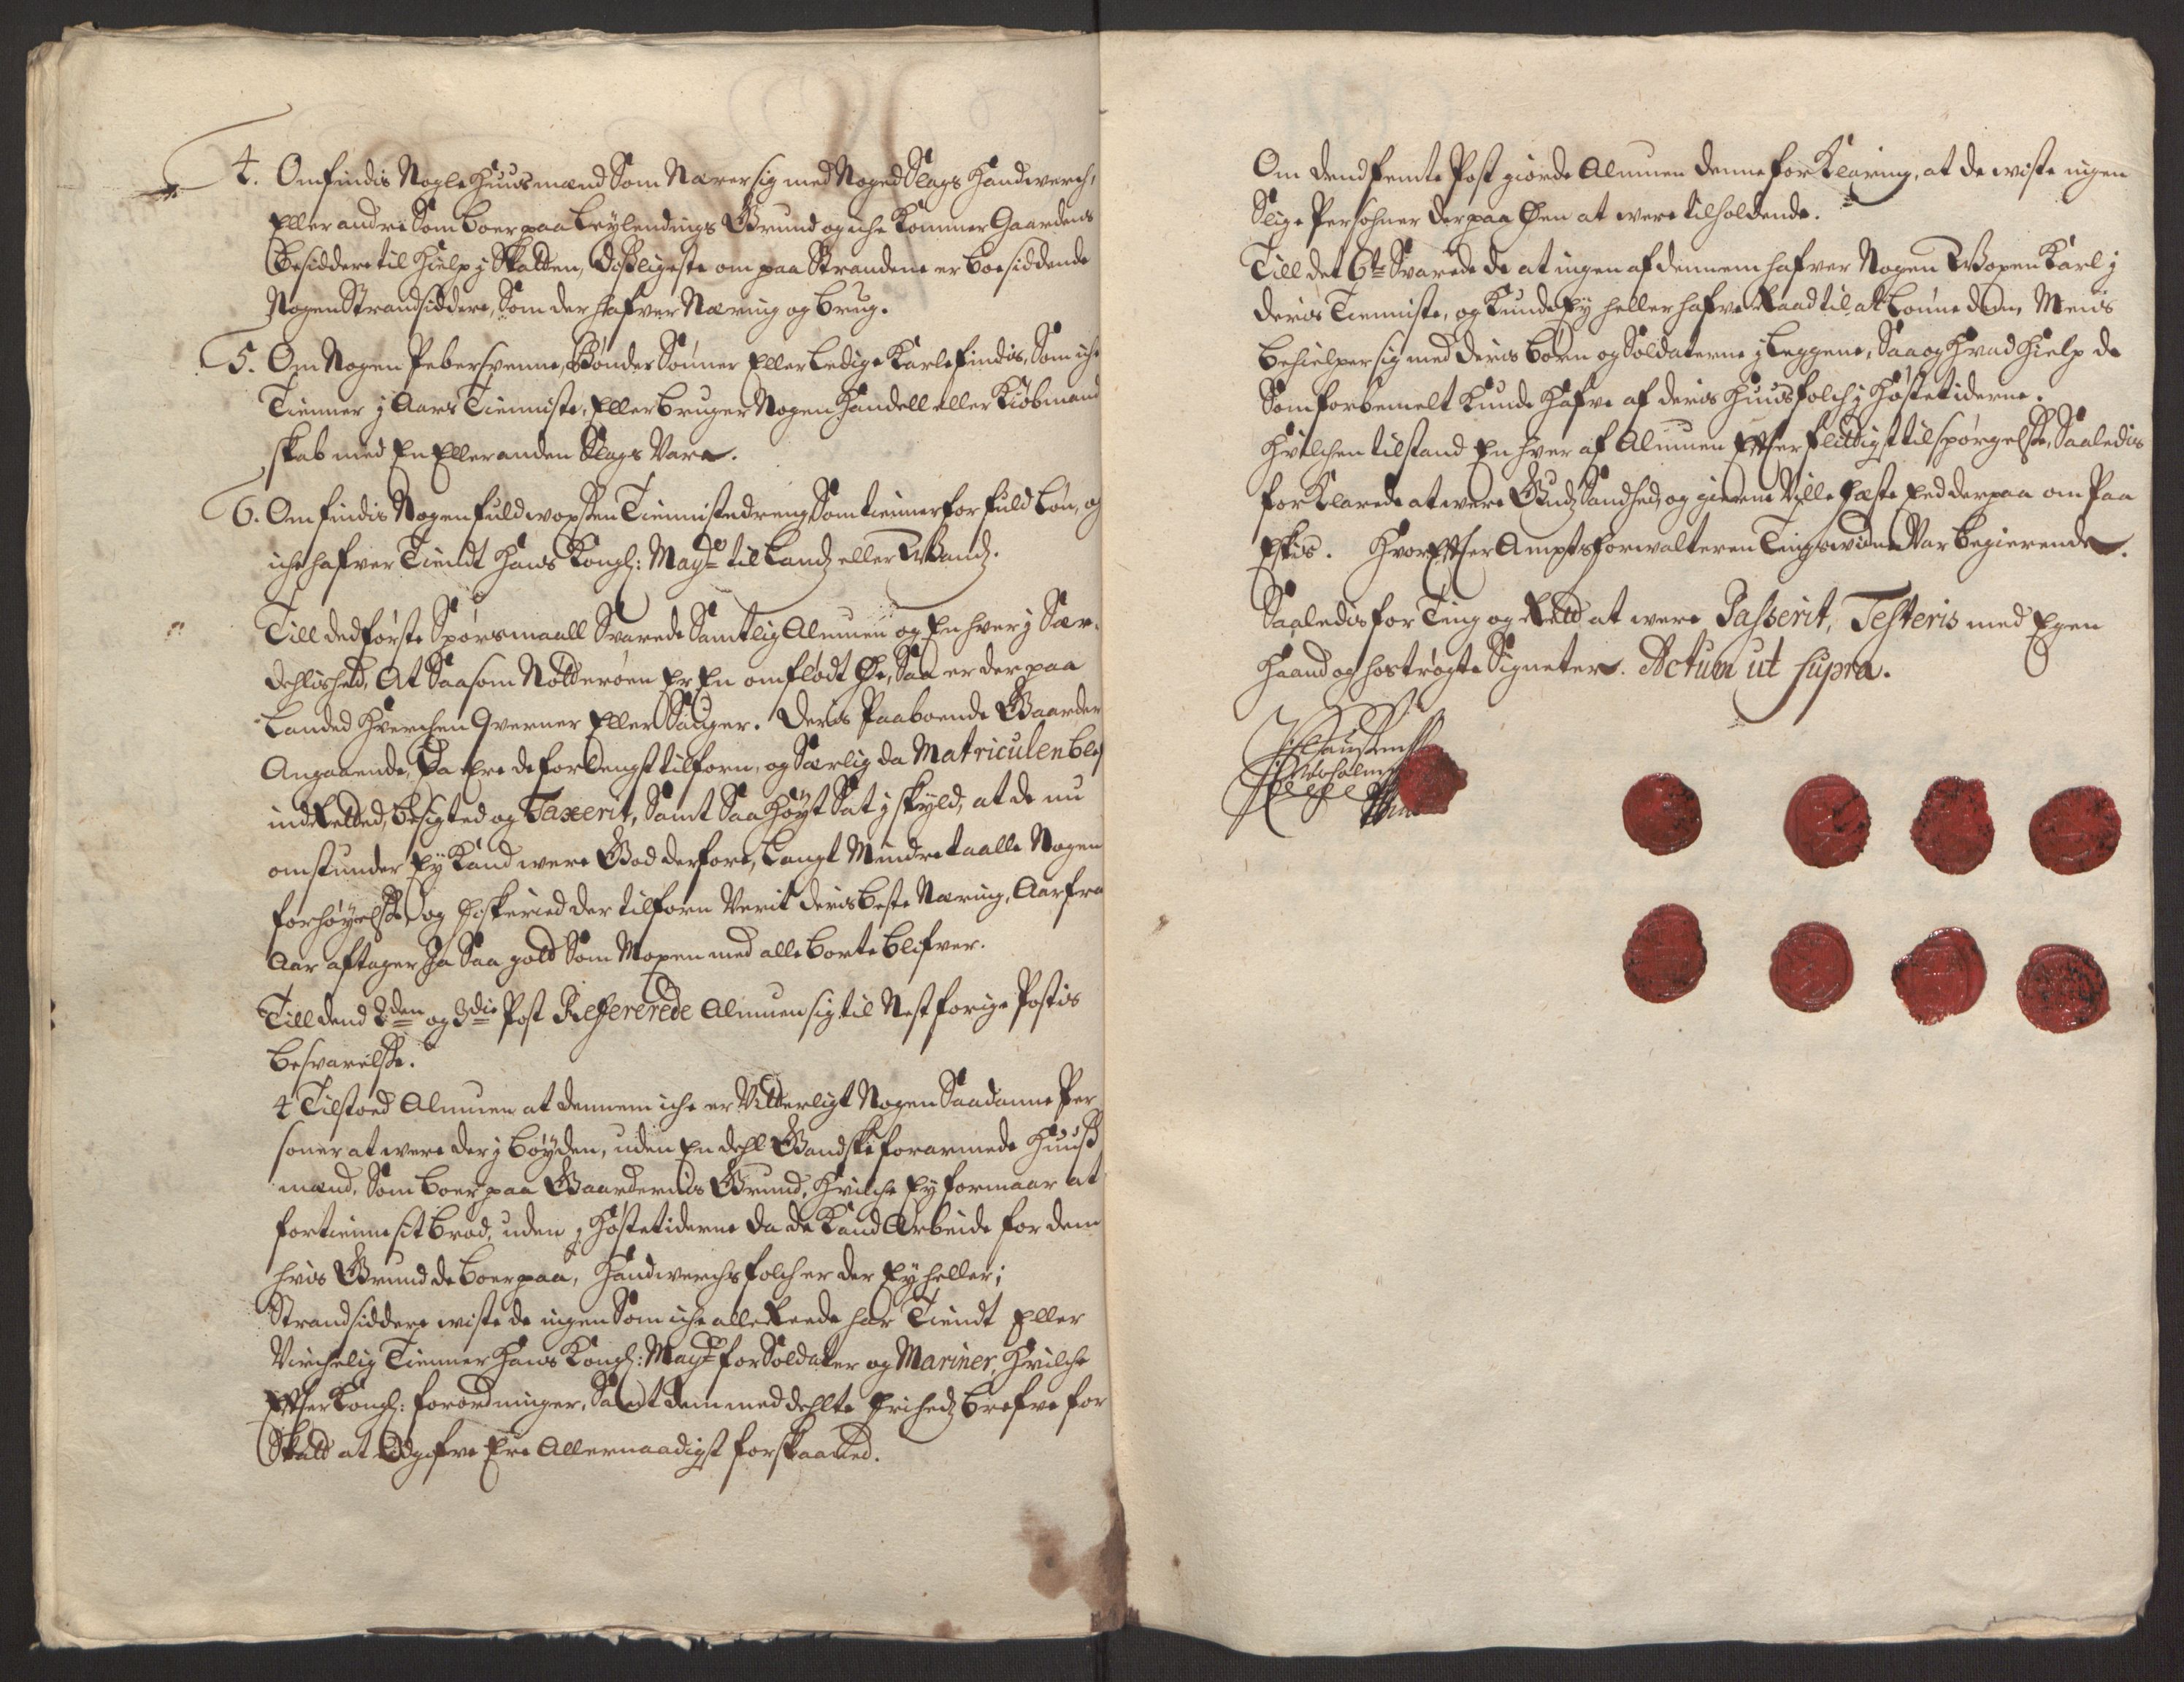 4. Om findis Nogle Huusmænd Som Nærer sig med Noged Slags Handwerch,
Eller andre Som boer paa Leylendings Grund og iche kommer Gaardens
besiddere til hielp j Skatten, disligeste om paa Strandene er boesiddende
Nogen Strandsiddere, Som der hafver Næring og brug.
5. Om Nogen Pebersvenne, Bønder Sønner Eller Ledige Karle findis, Som iche
Tienner j Aars Tienniste, Eller bruger Nogen Handell eller Kiøbmand
skab med En Eller anden Slags Vare.
6. Om findis Nogen fuldvoxsen Tiennistedreng Som tienner for fuld Løn, og
iche hafver Tiendt Hans Kongl: Mayt til Landz eller Wandz.
Till ded første Spørsmaall Svarede Samtlig Almuen og En hver j Sær-
dehlished, At Saasom Nøtterøen Er En omflødt Øe, Saa er der paa
Landed hverchen Qverner Eller Sauger. Deris Paaboende Gaarder
Angaaende, Da Ere de for Lengst tilforn, og Særlig da Matriculen blef
indretted, besigted og Taxerit, Samt Saa høyt Sat j skyld, at de nu
omstunder Ey kand were God derfore, Langt Mindre taalle Nogen
forhøyelse, og fiskeried der tilforn Verit deris beste Næring, Aar fra
Aar aftager Ja Saa godt Som Moxen med alle borte blifver.
Till dend 2den og 3die Post Refererede Almuen sig til Nest forige Postis
besvarelse.
4 Tilstoed Almuen at dennem iche er Vitterligt Nogen Saadanne Per
soner at were der j bøyden, uden En dehl Gandske forarmede Huuss
mænd, Som boer paa Gaardernis Grund, hvilche Ey formaar at
fortienne sit brød, uden j høstetiderne da de kand Arbeide for dem
hvis Grund de boer paa, Handwerchsfolch er der Ey heller;
Strandsiddere wiste de ingen Som iche allereede har Tiendt Eller
Virchelig Tienner Hans Kongl: Mayt for Soldater og Mariner, hvilche
Efter Kongl: forordninger, Samt dem meddehlte frihedz brefve for
Skatt at Udgifve Ere Allernaadigst forskaaned.
Om dend femte Post giorde Almuen denne forklaring, at de wiste ingen
Slige Persohner der paa Øen at were tilholdende.
Till det 6te Svarede de at ingen af dennem hafver Nogen Woxen Karl j
deris Tienniste, og kunde Ey heller hafve Raad til at Lønne dem, Mens
behielper sig med deris børn og Soldaterne j Leggene, Saa og hvad hielp de
Som forbemelt kunde hafve af deris Huusfolch j høstetiderne.
Hvilchen tilstand En hver af Almuen Efter flittigst tilspørgelse, Saaledis
forklarede at were Gudz Sandhed, og gierne Ville fæste Eed derpaa om Paa
Eskis. Hvor Efter Amptsforwalteren Tingswidne Var begierende.
Saaledis for Ting og Rett at were Passerit, Testeris med Egen
Haand og hostrøgte Signeter. Actum ut supra.